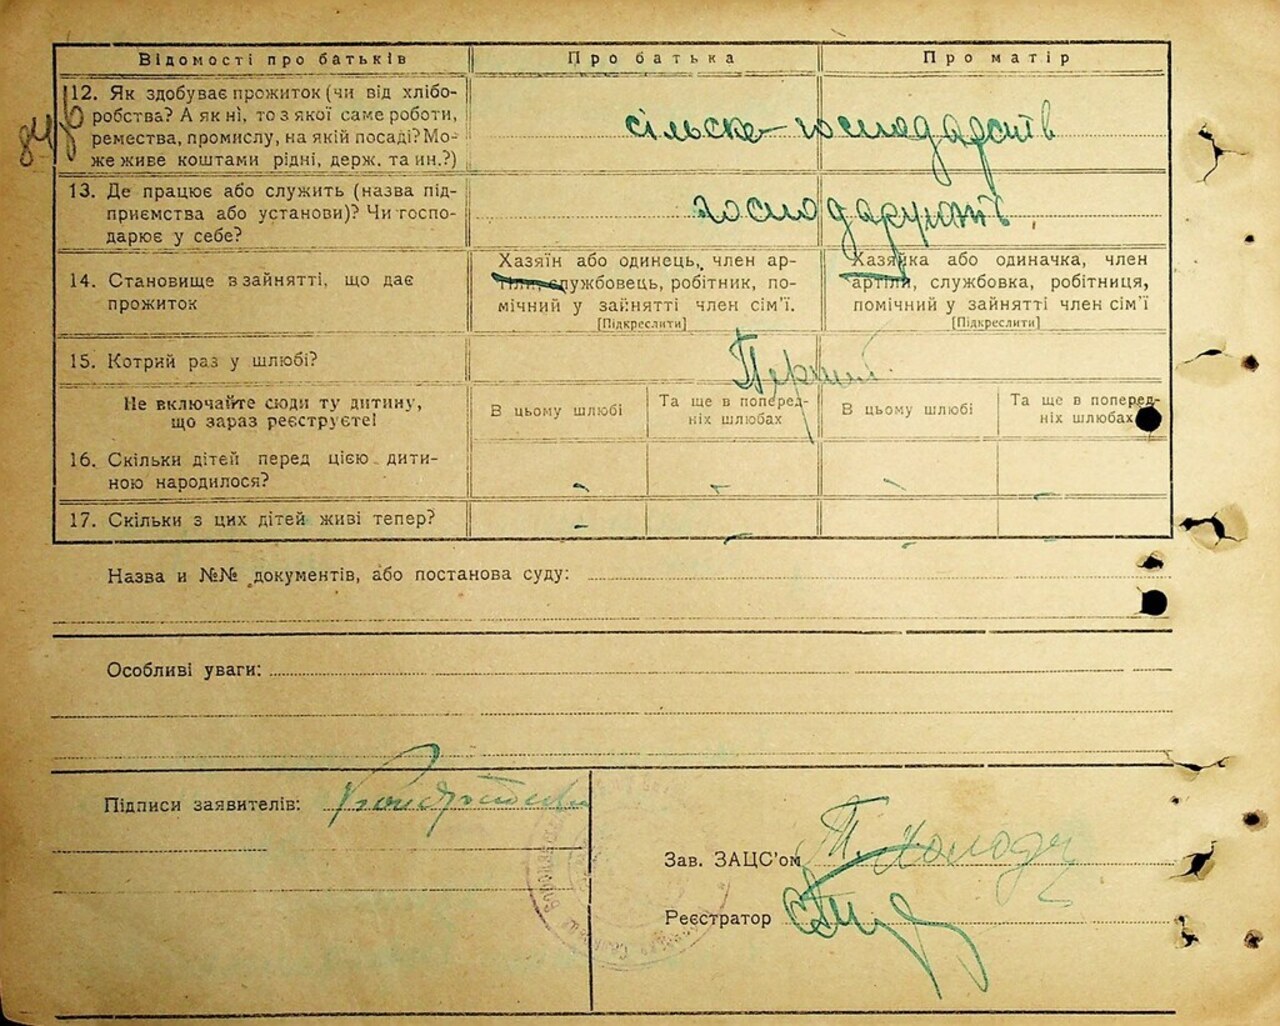 Відомості про батьків Про батька Про матір
84/б
12. Як здобуває прожиток (чи від хлібо-
робства? А як ні, то з якої саме роботи,
ремества, промислу, на якій посаді? Мо-
же живе коштами рідні, держ. та ин.?)
сільско-господарств
13. Де працює або служить (назва під-
приємства або установи)? Чи госпо-
дарює у себе?
14. Становище в зайнятті, що дає
прожиток
Хазяїн або одинець, член ар-
тіли, службовець, робітник, по-
мічний у зайнятті член сім'ї.
[Підкреслити]
Хазяйка або одиначка, член
артіли, службовка, робітниця,
помічний у зайнятті член сім'ї
[Підкреслити]
15. Котрий раз у шлюбі?
Не включайте сюди ту дитину,
що зараз реєструєте!
В цьому шлюбі
Та ще в поперед-
ніх шлюбах
В цьому шлюбі
Та ще в поперед-
ніх шлюбах
16. Скільки дітей перед цією дити-
ною народилося?
- - - -
17. Скільки з цих дітей живі тепер?
- - - -
Назва и №№ документів, або постанова суду:
Особливі уваги:
Підписи заявителів:
Зав. ЗАЦС'ом
Реєстратор